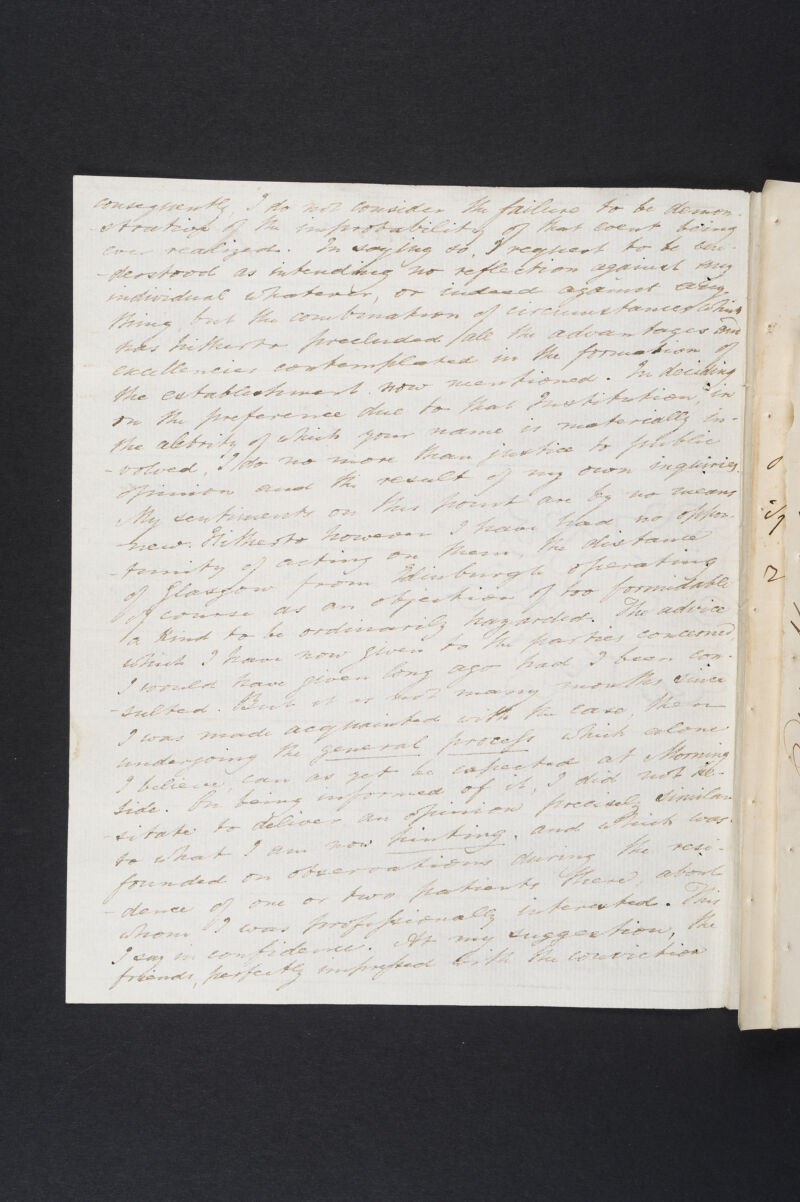 consequently, I do not consider the failure to be demon-
-stration of the improbability of that event being
ever realized. In saying so, I request to be un-
-derstood as intending no reflection against any
individual whatever, or indeed against any-
thing, but the combination of circumstances which
has hitherto precluded all the advantages and
excellencies contemplated in the formation of
the establishment now mentioned. In deciding
on the preference due to that Institution, in
the celebrity of which your name is materially in-
-volved, I do no more than justice to public
opinion and the result of my own inquiries.
My sentiments on this point are by no means
new. Hitherto however I have had no oppor-
-tunity of acting on them, the distance
of Glasgow from Edinburgh operating
of course as an objection of too formidable
a kind to be ordinarily hazarded. The advice
which I have now given to the parties concerned,
I would have given long ago had I been con-
-sulted. But it is not many months since
I was made acquainted with the case, then
undergoing the general process which alone
I believe, can as yet be expected at Morning
side. On being informed of it, I did not he-
-sitate to deliver an opinion precisely similar
to what I am now hinting, and which was
founded on observations during the resi-
-dence of one or two patients there, about
whom I was professionally interested. This
I say in confidence. At my suggestion, the
friends, perfectly impressed with the conviction